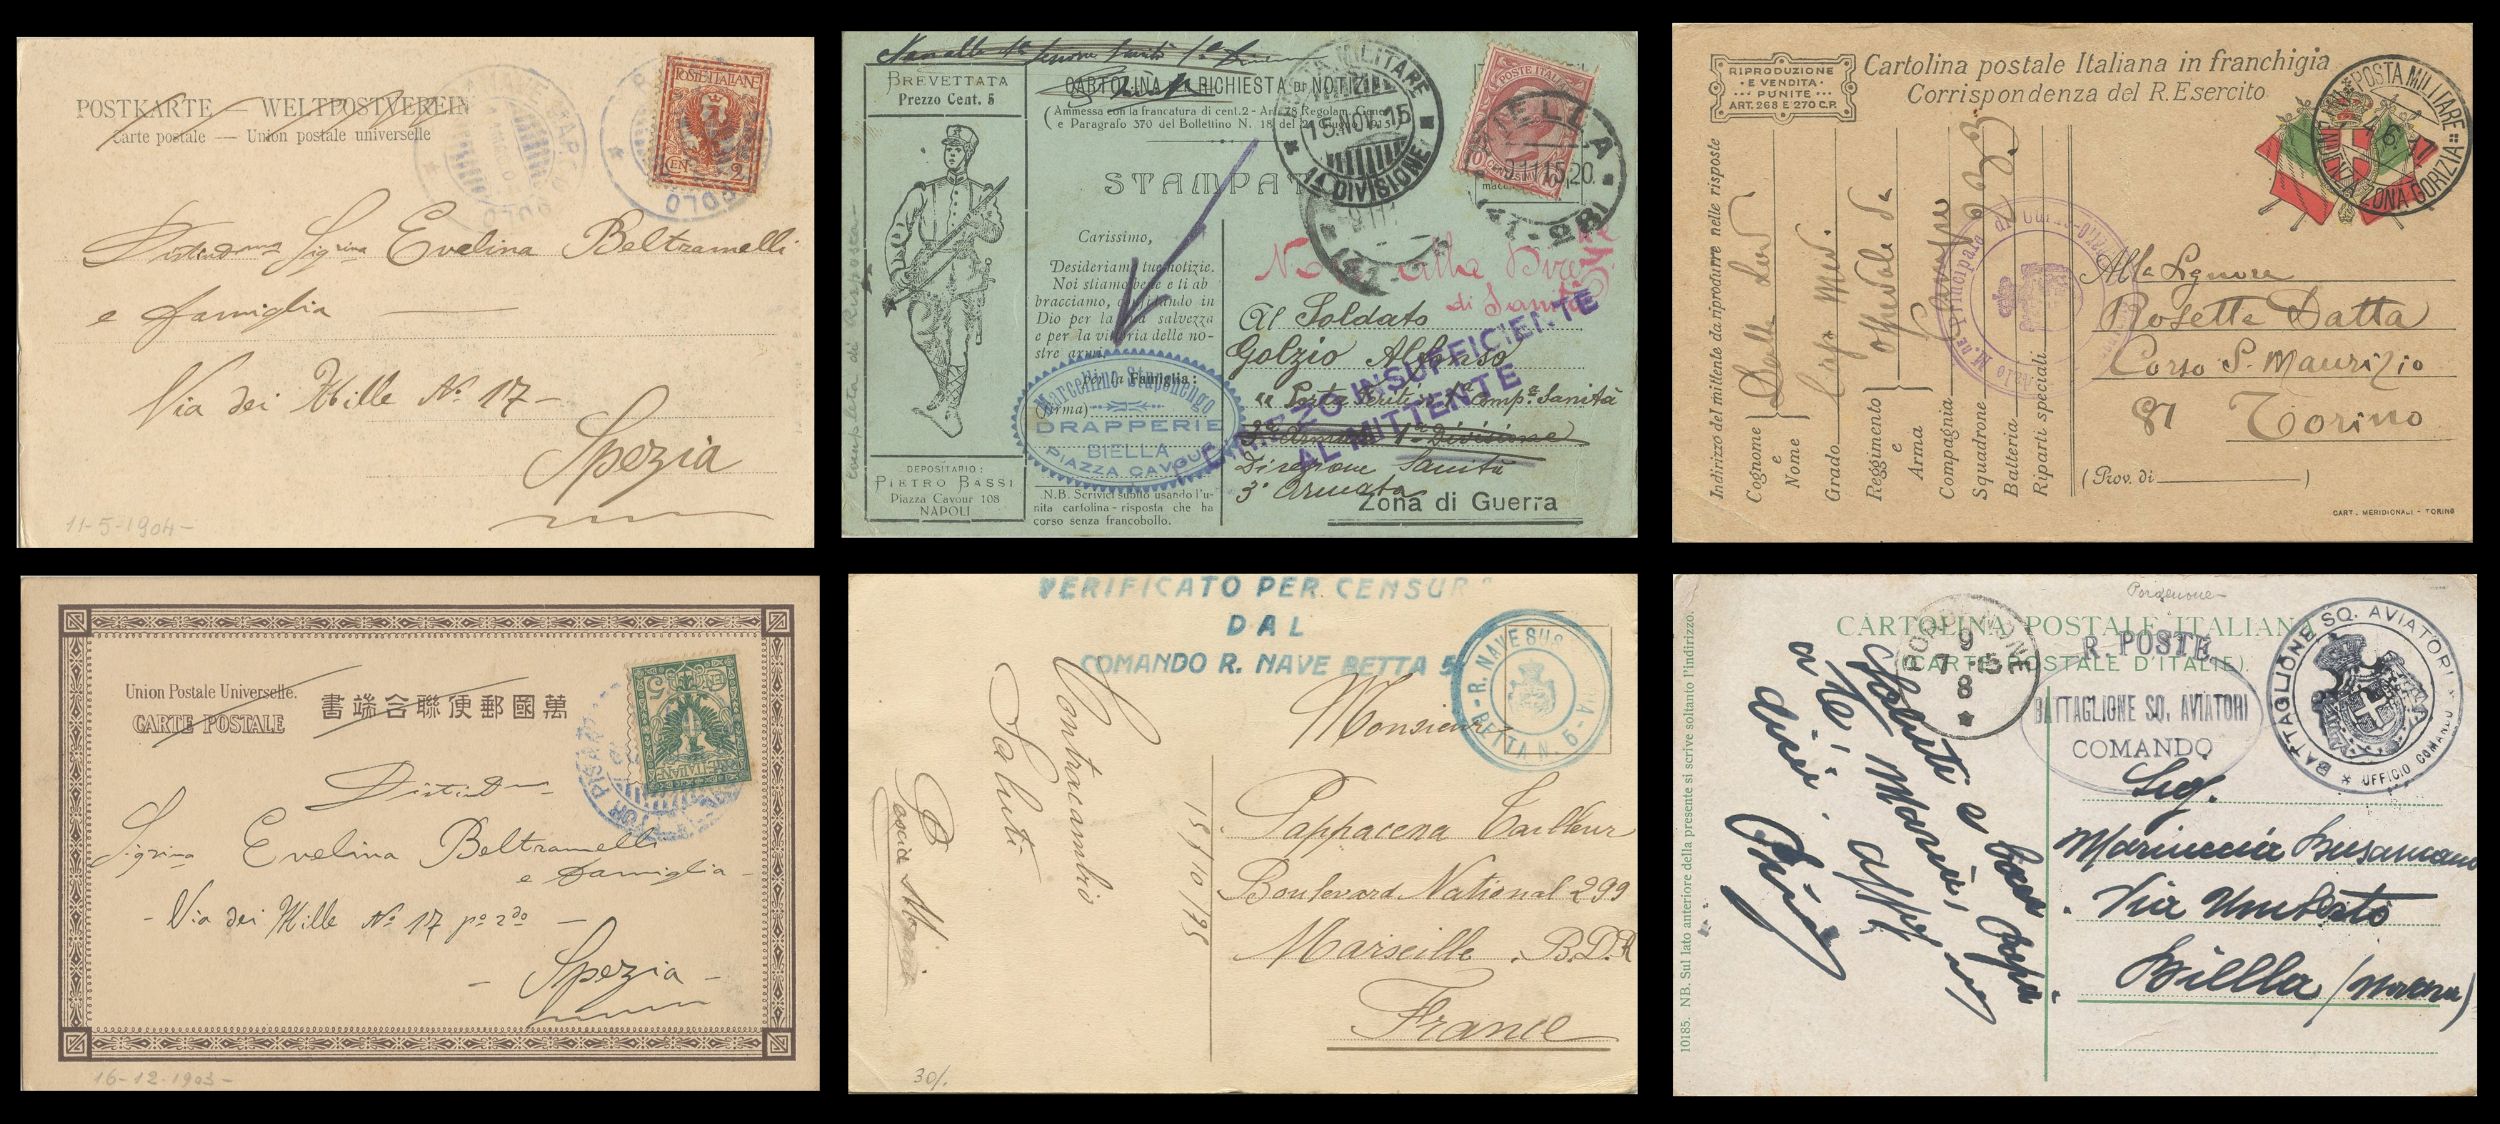 POSTKARTE — WELTPOSTVEREIN
Carte postale — Union postale universelle
POSTE ITALIANE
CENT. 2
Sigrina Evelina Beltramelli
e famiglia
Via dei Mille No 17 –
Spezia
11-5-1904-
BREVETTATA
Prezzo Cent. 5
CARTOLINA RICHIESTA DI NOTIZIE
(Ammessa con la francatura di cent. 2 - Art. 78 Regolam. Gener.
e Paragrafo 370 del Bollettino N. 18 del
POSTA MILITARE
15.NOV.15
1ª DIVISIONE
POSTE ITALIANE
10 CENTESIMI 10
BIELLA
STAMPAT
completa di Risposta
Carissimo,
Desideriamo tue notizie.
Noi stiamo bene e ti ab
bracciamo, confidando in
Dio per la tua salvezza
e per la vittoria delle no-
stre armi.
per la Famiglia:
(firma)
Marcellino Stupenengo
DRAPPERIE
BIELLA
PIAZZA CAVOUR
DEPOSITARIO:
PIETRO BASSI
Piazza Cavour 108
NAPOLI
N.B. Scrivici subito usando l'u-
nita cartolina-risposta che ha
corso senza francobollo.
Al Soldato
Golzio Alfonso
Porta Feriti 1ª Compª Sanità
3ª Armata 1ª Divisione
Direzione Sanità
3ª Armata
Zona di Guerra
INDIRIZZO INSUFFICIENTE
AL MITTENTE
RIPRODUZIONE
E VENDITA
PUNITE
ART. 268 E 270 C.P.
Cartolina postale Italiana in franchigia
Corrispondenza del R. Esercito
POSTA MILITARE
INTENZA ZONA GORIZIA
Indirizzo del mittente da riprodurre nelle risposte
Cognome e Nome
Grado
Reggimento e Arma
Compagnia
Squadrone
Batteria
Riparti speciali
Alla Signora
Rosetta Datta
Corso S. Maurizio
81 Torino
(Prov. di )
CART. MERIDIONALI - TORINO
Union Postale Universelle.
CARTE POSTALE
書端合聯便郵國萬
POSTE ITALIANE
CENT. 5
Sigrina Evelina Beltramelli
e famiglia –
– Via dei Mille No 17 po 2do –
– Spezia –
16-12-1903-
VERIFICATO PER CENSUR
DAL
COMANDO R. NAVE BETTA 5
R. NAVE SUS
BETTA N. 5
Contracambio
Saluti
15/10/35
Monsieur
Pappacena Tailleur
Boulevard National 299
Marseille. B.D.R
France
30/.
Pordenone
CARTOLINA POSTALE ITALIANA
(CARTE POSTALE D'ITALIE).
PORDENONE
9
7-15
8
R. POSTE
BATTAGLIONE SQ. AVIATORI
COMANDO
BATTAGLIONE SQ. AVIATORI
UFFICIO COMANDO
10185. NB. Sul lato anteriore della presente si scrive soltanto l'indirizzo.
Saluti e
Sig.
Via Umberto
Biella (Novara)